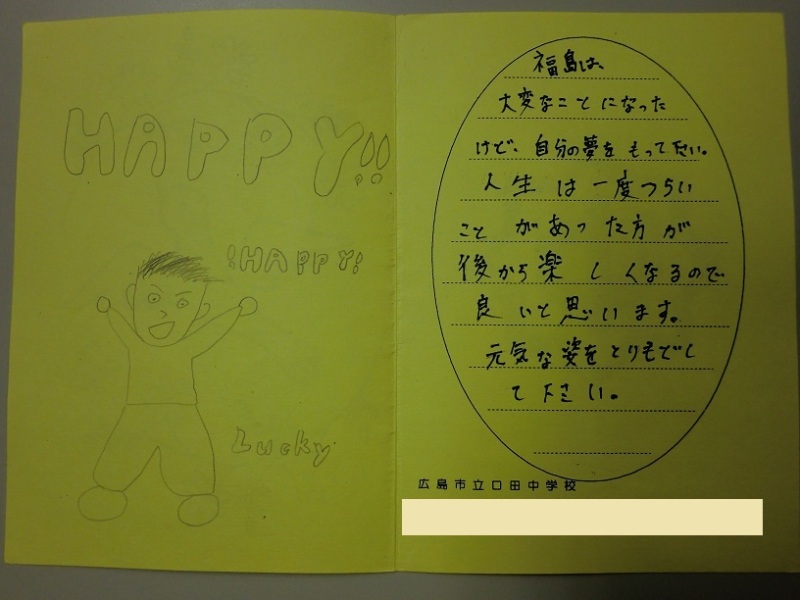 HAPPY!!
!HAPPY!
Lucky
福島は、
大変なことになった
けど、自分の夢をもって下さい。
人生は一度つらい
ことがあった方が
後から楽しくなるので
良いと思います。
元気な姿をとりもどし
て下さい。
広島市立口田中学校